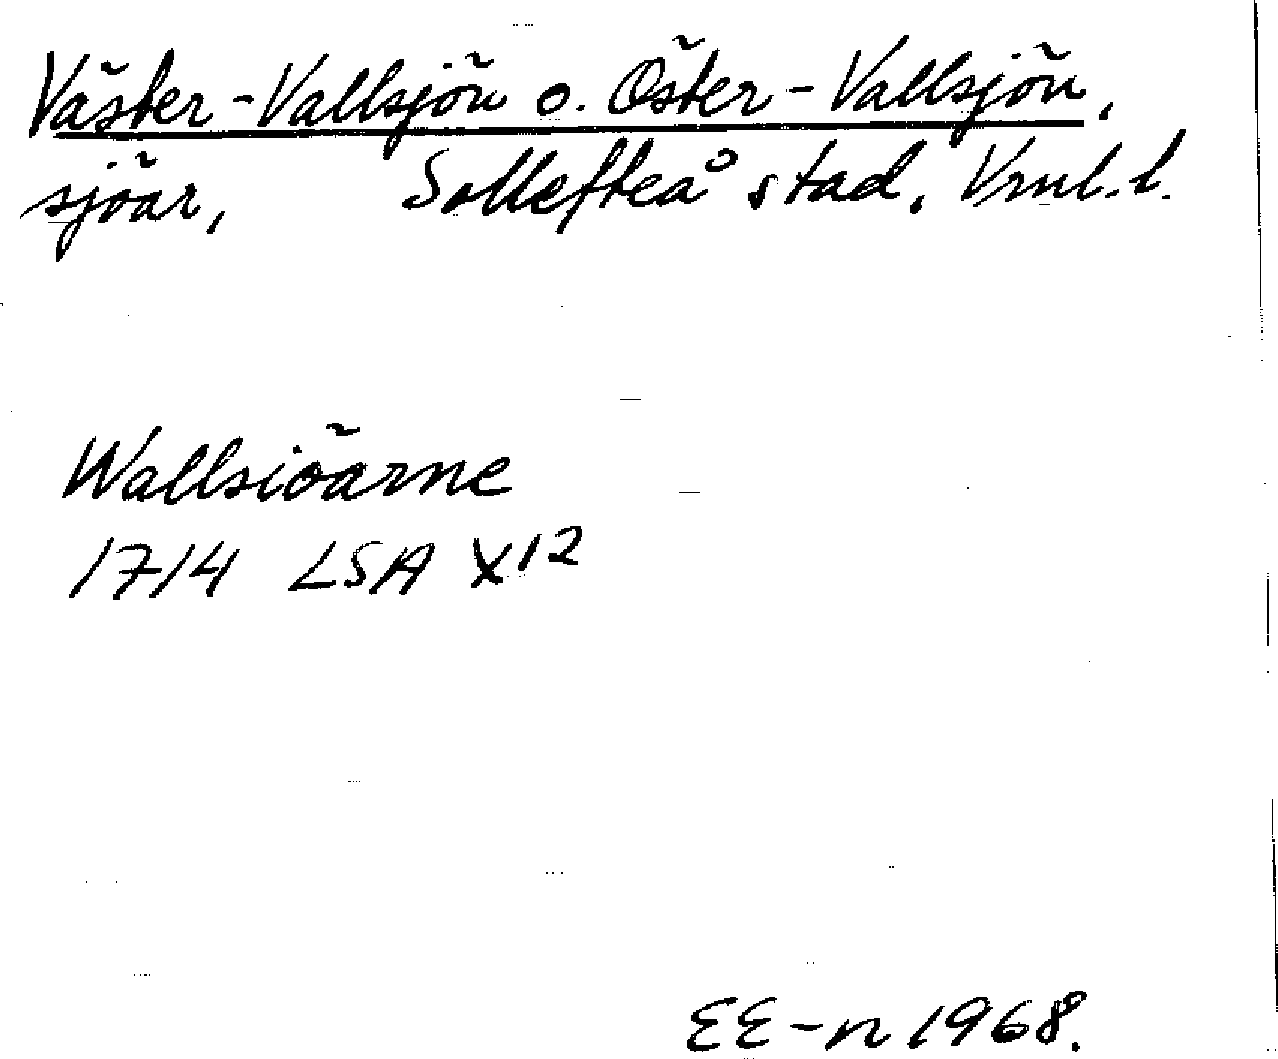 Väster-Vallsjön o. Öster-Vallsjön,
sjöar, Sollefteå stad, Vnl. l.
Wallsiöarne
1714 LSA X12
EE-n 1968.